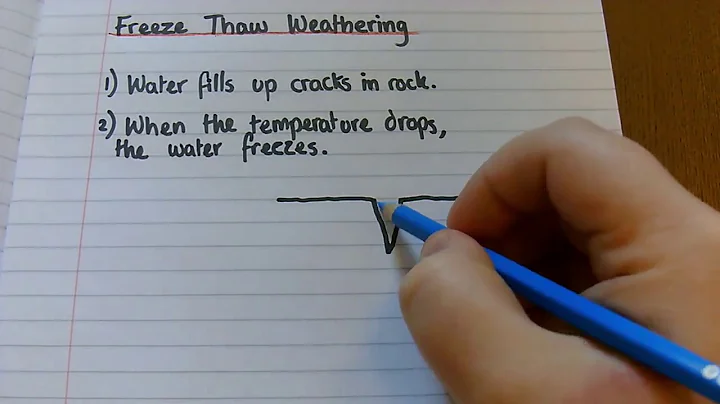 Freeze Thaw Weathering
1) Water fills up cracks in rock.
2) When the temperature drops,
the water freezes.